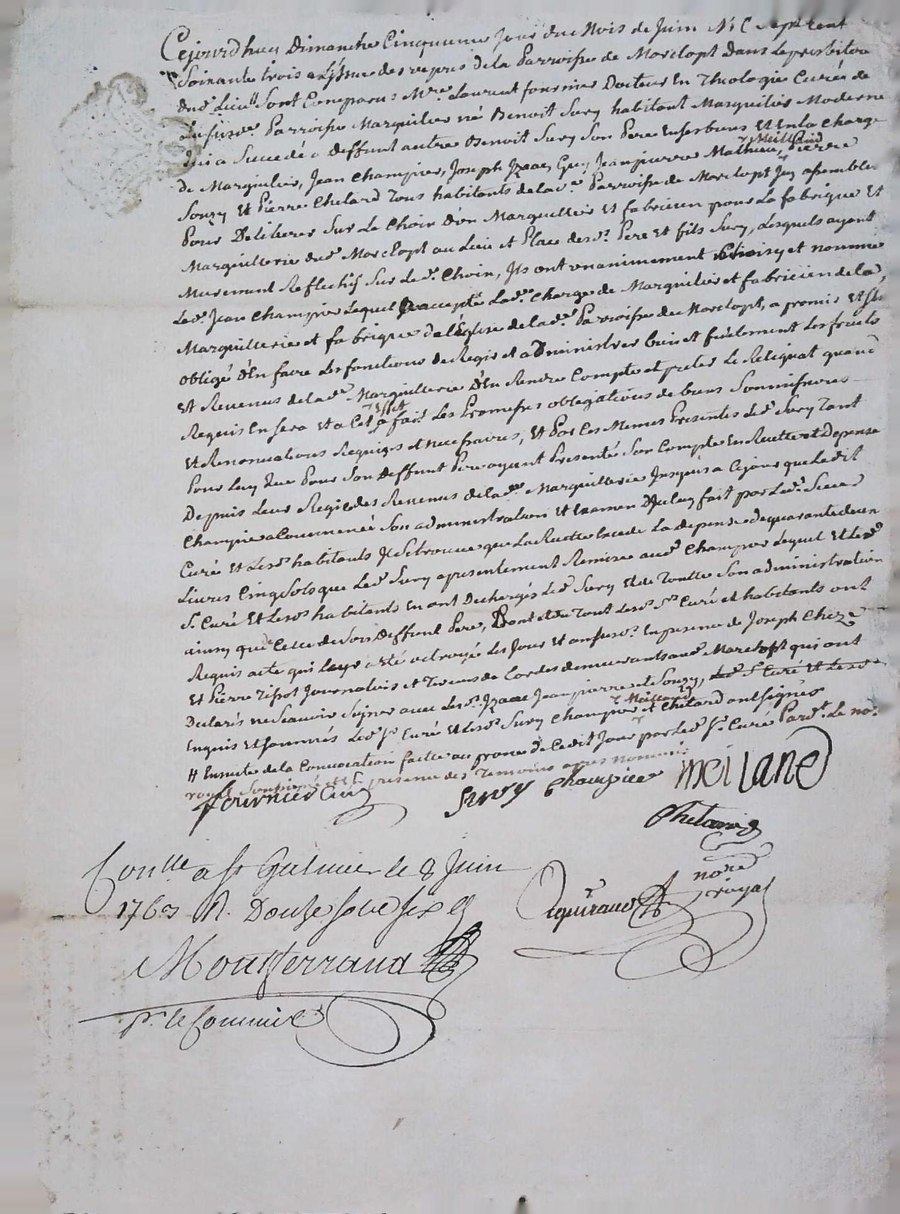 Cejourdhuy Dimanche Cinquieme Jour du Mois de Juin Mil Sept Cent
Soixante trois a L'jssue des vepres de la Parroisse de Marclopt dans Le presbitere
dud. Lieu Sont Comparus Mre. Laurent fournier Docteur En Theologie Curé de
Parroisse Marguilier né Benoit Sury habitant Marguilier Moderne
qui a Succedé a deffunt autre Benoit Sury Son Pere En La Charge
de Marguilier, Jean Champier, Joseph Jzaac Guy, Jean pierre Mathieu Meilland, Pierre
Souzy Et Pierre Chelard Tous habitants de lad. Parroisse de Marclopt Jcy assemblés
Pour Deliberer Sur Le Choix D'un Marguillier Et fabricien pour La fabrique Et
Marguillerie dud. Marclopt au Lieu et Place desd. Pere Et fils Sury, Lesquels ayant
Murement Reflechis Sur Led. Choix, Jls ont unanimement Choisy et nommé
Led. Jean Champier Lequel a accepté Lad. Charge de Marguilier et fabricien de la
Marguillerie et fabrique de l'Eglise de lad. Parroisse du Marclopt, a promis Et S'est
obligé d'En faire Les fonctions de Regir et administrer bien et fidelement Les fruits
Et Revenus de lad. Marguillerie d'En Rendre Compte et preter Le Reliquat quand
Requis En Sera Et a Cet Effet a fait Les Promesses obligations de biens Soumissions
Et Renonciations Requises et necessaires, Et Par Ces Memes Presentes Led. Sury Tant
Pour Luy que Pour Son deffunt Pere ayant Presenté Son Compte En Recette et Depense
Depuis Leur Regie des Revenus de lad. Marguillerie Jusques a Cejour que Ledit
Champier a Commencé Son administration Et Examen D'Iceluy fait par Led. Sieur
Curé Et Lesd. habitants Jl Se trouve que La Recette Excede La depense de quarante deux
Livres Cinq Sols que Led. Sury a presentement Remises aud. Champier Lequel Et Led.
Sr. Curé Et Lesd. habitants En ont Dechargés Led. Sury Et de Toutte Son administration
ainsy que Celle du Sois deffunt Pere, Dont Et du Tout Lesd. Sr. Curé et habitants ont
Requis acte qui Leur a Eté octroyé Les Jour Et an Susd. En presence de Joseph Cheze
Et Pierre Journaliers et demeurants aud. Marclopt qui ont
Declarés ne Scavoir Signer avec Lesd. Jzaac Jean pierre de Souzy, Led. Sr. Curé Et Lesd.
Enquis Et Sommés Led. Sr. Curé Et Lesd. Sury Champier Meilland Et Chelard ont Signés
# Ensuite de la Convocation faitte au prone de Cedit Jour par Led. Sr. Curé Pardt. Le nore.
royal Soussigné et En presence des Temoins apres nommés
fournier Curé Sury Champier meilland
Chelard
Conlle a St Galmier le 8 Juin
1763 R. Douze sols six d
Montferrand
pr. le Commis
nore
royal